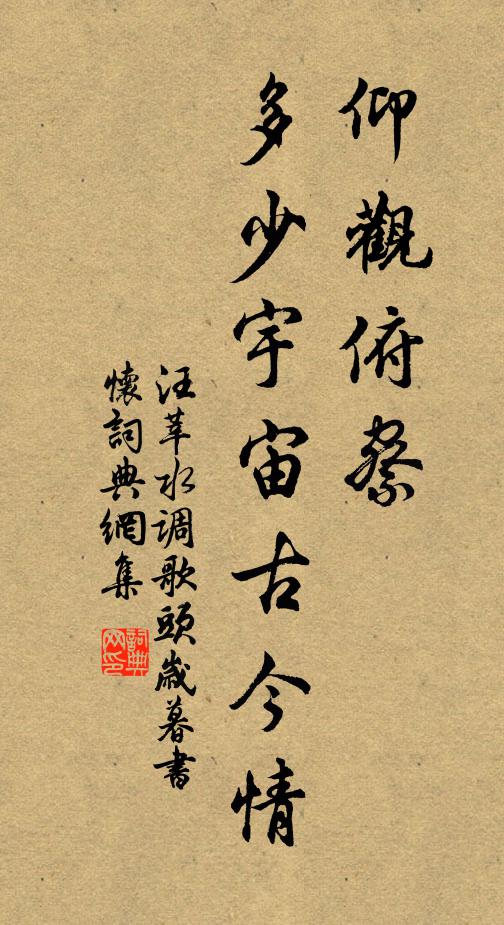 仰觀俯察
多少宇宙古今情
汪莘水调歌頭歲暮書
懷詞典網集
詞典网印